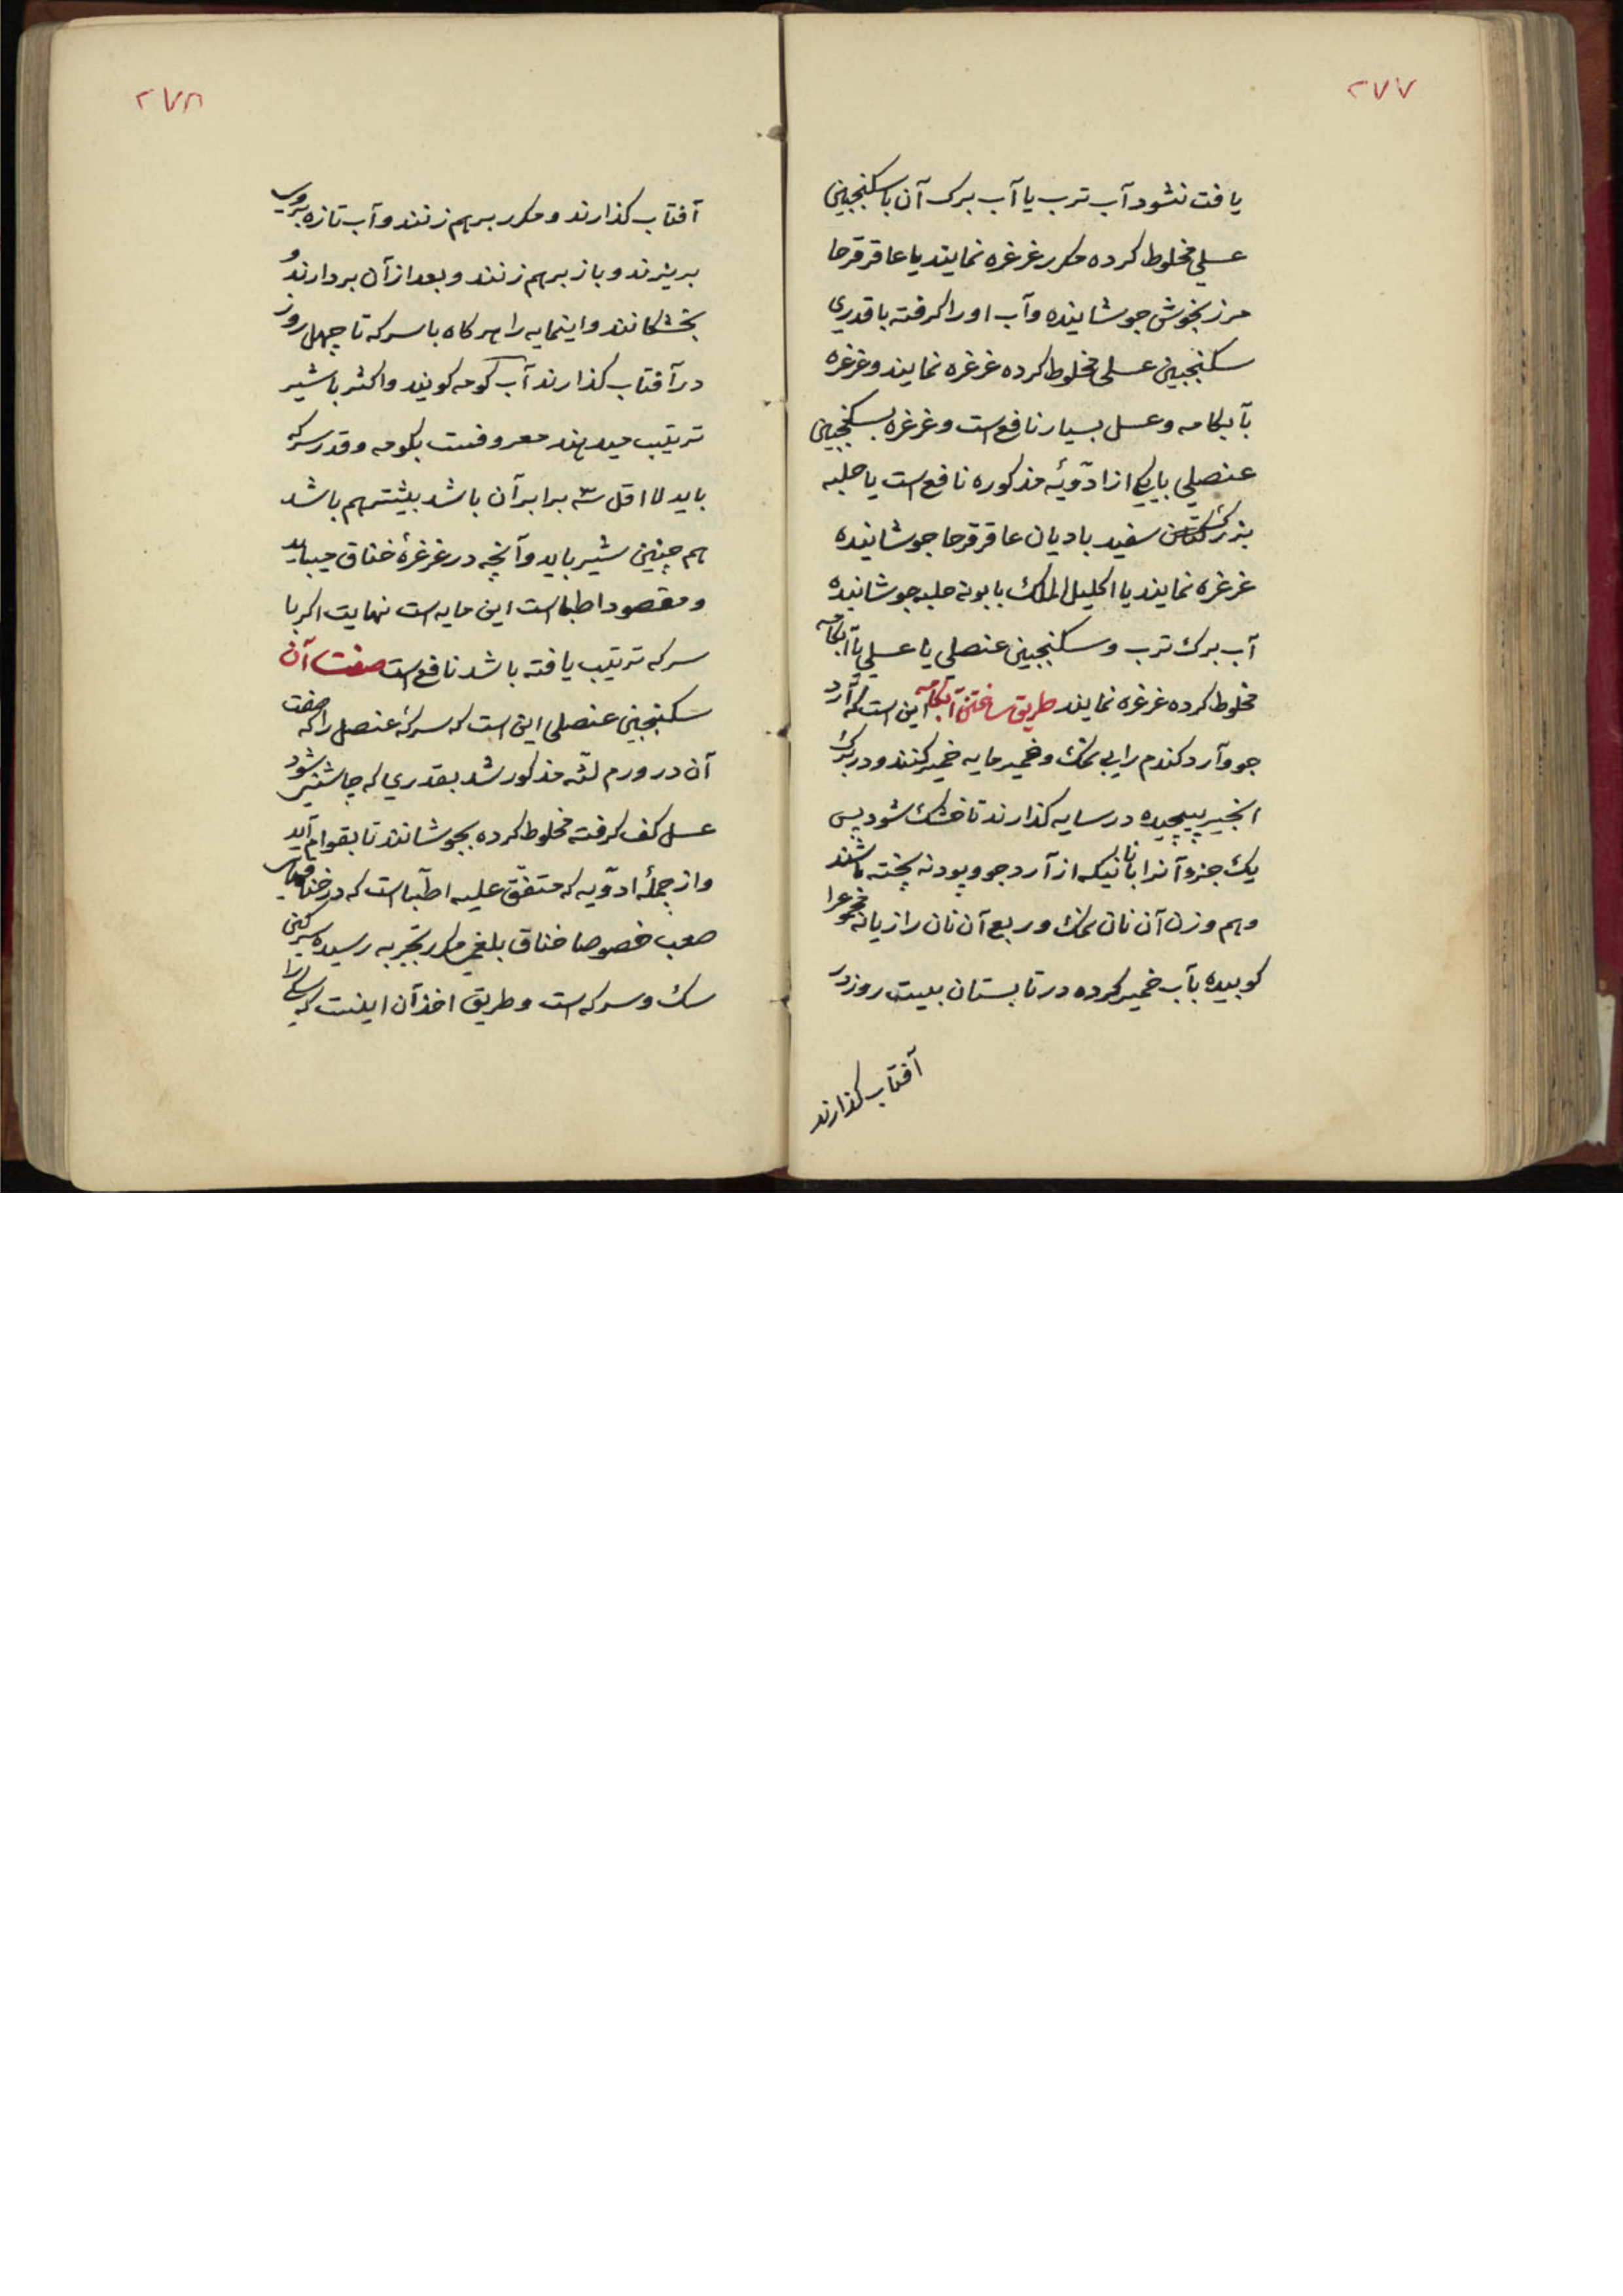 ۲۷۷
یافت نشود آب ترب یا آب برک آن با سکنجبین
عسلی مخلوط کرده مکرر غرغره نمایند یا عاقرقرحا
مرزنجوش جوشانیده وآب اورا کرفته باقدری
سکنجبین عسلی مخلوط کرده غرغره نمایند وغرغره
بآبکامه وعسل بسیار نافع است وغرغره بسکنجبین
عنصلی بایکی از ادویهٔ مذکوره نافع است یا حلبه
بزرک کتان سفید بادیان عاقرقرحا جوشانیده
غرغره نمایند یا اکلیل الملک بابونه حلبه جوشانیده
آب برک ترب وسکنجبین عنصلی یا عسلی یا آبکامه
مخلوط کرده غرغره نمایند طریق ساختن آبکامه این است که آرد
جو وآرد کندم را بی نمک وخمیر مایه خمیر کنند ودر برک
انجیر پیچیده در سایه کذارند تا خشک شود پس
یک جزو آنرا با نانیکه از آرد جو و پودنه پخته باشند
وهم وزن آن نان نمک وربع آن نان رازیانه مجموعرا
کوبیده بآب خمیر کرده در تابستان بیست روز در
آفتاب کذارند
۲۷۸
آفتاب کذارند ومکرر برهم زنند وآب تازه بروی
بریزند وباز برهم زنند وبعد از آن بردارند و
بخشکانند واینمایه را هرکاه با سرکه تا چهل روز
در آفتاب کذارند آب کومه کویند واکثر با شیر
ترتیب میدهند معروفست بکومه وقدر سرکه
باید لا اقل سه برابر آن باشد بیشتر هم باشد
هم چنین شیر باید وآنچه در غرغرهٔ خناق میباید
ومقصود اطبا است این مایه است نهایت اکر با
سرکه ترتیب یافته باشد نافع است صفت آن
سکنجبین عنصلی این است که سرکهٔ عنصل را که صفت
آن در ورم لثه مذکور شد بقدری که چاشنی شود
عسل کف کرفته مخلوط کرده بجوشانند تا بقوام آید
واز جملهٔ ادویه که متفق علیه اطبا است که در خناقهای
صعب خصوصا خناق بلغمی مکرر بتجربه رسیده سرکین
سک وسرکه است وطریق اخذ آن اینست که سکی را